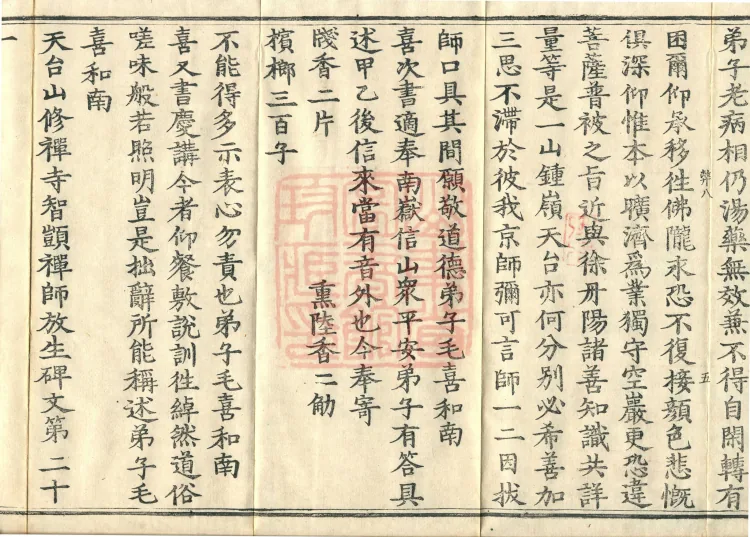 弟子老病相仍湯藥無效兼不得自閑轉有
困爾仰承移徃佛隴永恐不復接顏色悲慨
俱深仰惟本以曠濟爲業獨守空巖更恐違
菩薩普被之旨近與徐丹陽諸善知識共詳
量等是一山鍾嶺天台亦何分別必希善加
三思不滯於彼我京師彌可言師一二因拔
師口具其間願敬道德弟子毛喜和南
喜次書適奉南嶽信山衆平安弟子有答具
述甲乙後信來當有音外也今奉寄
牋香二片 熏陸香二觔
檳榔三百子
不能得多示表心勿責也弟子毛喜和南
喜又書慶講今者仰餐敷說訓徃綽然道俗
嗟味般若照明豈是拙辭所能稱述弟子毛
喜和南
天台山修禪寺智顗禪師放生碑文第二十
一
五